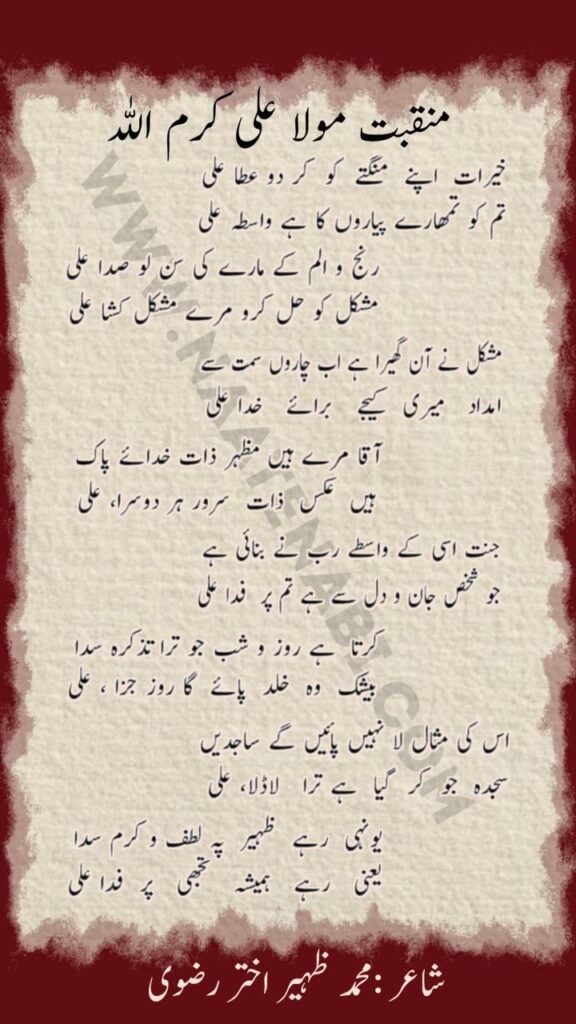 منقبت مولا علی کرم اللہ
خیرات اپنے منگتے کو کر دو عطا علی
تم کو تمھارے پیاروں کا ہے واسطہ علی
رنج و الم کے مارے کی سن لو صدا علی
مشکل کو حل کرو مرے مشکل کشا علی
مشکل نے آن گھیرا ہے اب چاروں سمت سے
امداد میری کیجے برائے خدا علی
آقا مرے ہیں مظہر ذات خدائے پاک
ہیں عکس ذات سرور ہر دوسرا، علی
جنت اسی کے واسطے رب نے بنائی ہے
جو شخص جان و دل سے ہے تم پر فدا علی
کرتا ہے روز و شب جو ترا تذکرہ سدا
بیشک وہ خلد پائے گا روز جزا ، علی
اس کی مثال لا نہیں پائیں گے ساجدیں
سجدہ جو کر گیا ہے ترا لاڈلا، علی
یونہی رہے ظہیر پہ لطف و کرم سدا
یعنی رہے ہمیشہ تجھی پر فدا علی
شاعر :محمد ظہیر اختر رضوی
WWW.NAATENABI.COM